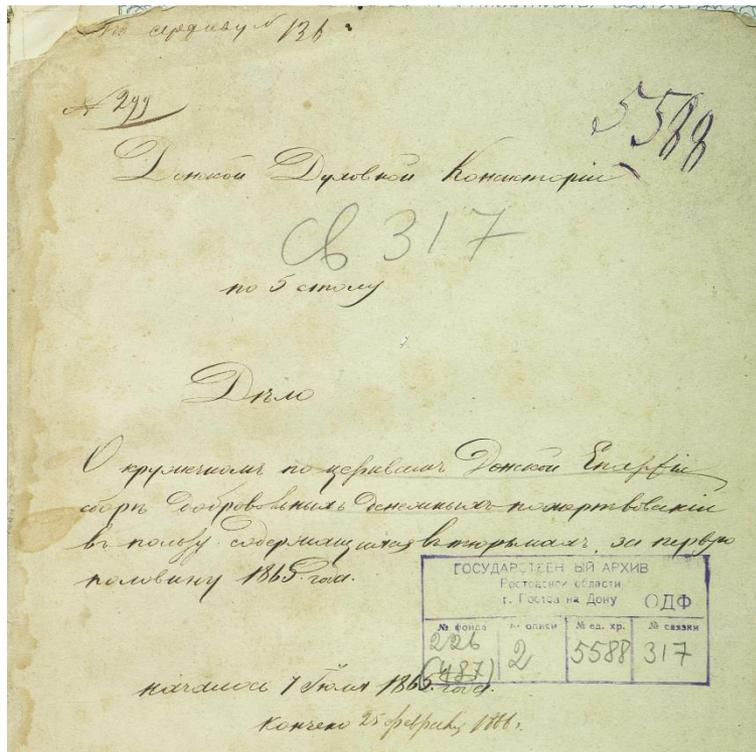 По архиву № 136
№ 299
5588
Донской Духовной Консисторіи
св 317
по 5 столу
Дѣло
О кружечномъ по церквамъ Донской Епархіи
сборѣ добровольныхъ денежныхъ пожертвованій
въ пользу содержащихся въ тюрьмахъ, за первую
половину 1865 года.
ГОСУДАРСТВЕН ЫЙ АРХИВ
Ростовской области
г. Ростов на Дону ОДФ
№ фонда № описи № ед. хр. № связки
226 2 5588 317
(487)
началось 7 Іюля 1865 года.
Кончено 25 февраля 1866 г.